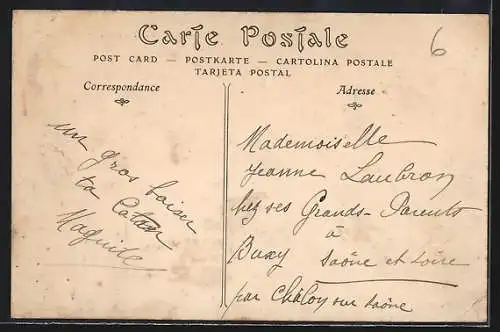 Carte Postale
6
POST CARD — POSTKARTE — CARTOLINA POSTALE
TARJETA POSTAL
Correspondance
un gros baiser
ta
Adresse
Mademoiselle
Jeanne
chez ses Grands-Parents
à
Buxy Saône et Loire
par Châlon sur Saône